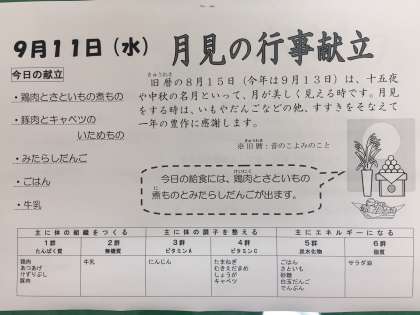 9月11日（水） 月見の行事献立
今日の献立
・鶏肉とさといもの煮もの
・豚肉とキャベツの
いためもの
・みたらしだんご
・ごはん
・牛乳
旧暦の８月１５日（今年は９月１３日）は、十五夜
や中秋の名月といって、月が美しく見える時です。月見
をする時は、いもやだんごなどの他、すすきをそなえて
一年の豊作に感謝します。
※旧暦：昔のこよみのこと
今日の給食には、鶏肉とさといもの
煮ものとみたらしだんごが出ます。
主に体の組織をつくる 主に体の調子を整える 主にエネルギーになる
1群 2群 3群 4群 5群 6群
たんぱく質 無機質 ビタミンA ビタミンC 炭水化物 脂質
鶏肉 牛乳 にんじん たまねぎ ごはん サラダ油
あつあげ むきえだまめ さといも
けずりぶし しょうが 砂糖
豚肉 キャベツ 白玉だんご
でんぷん